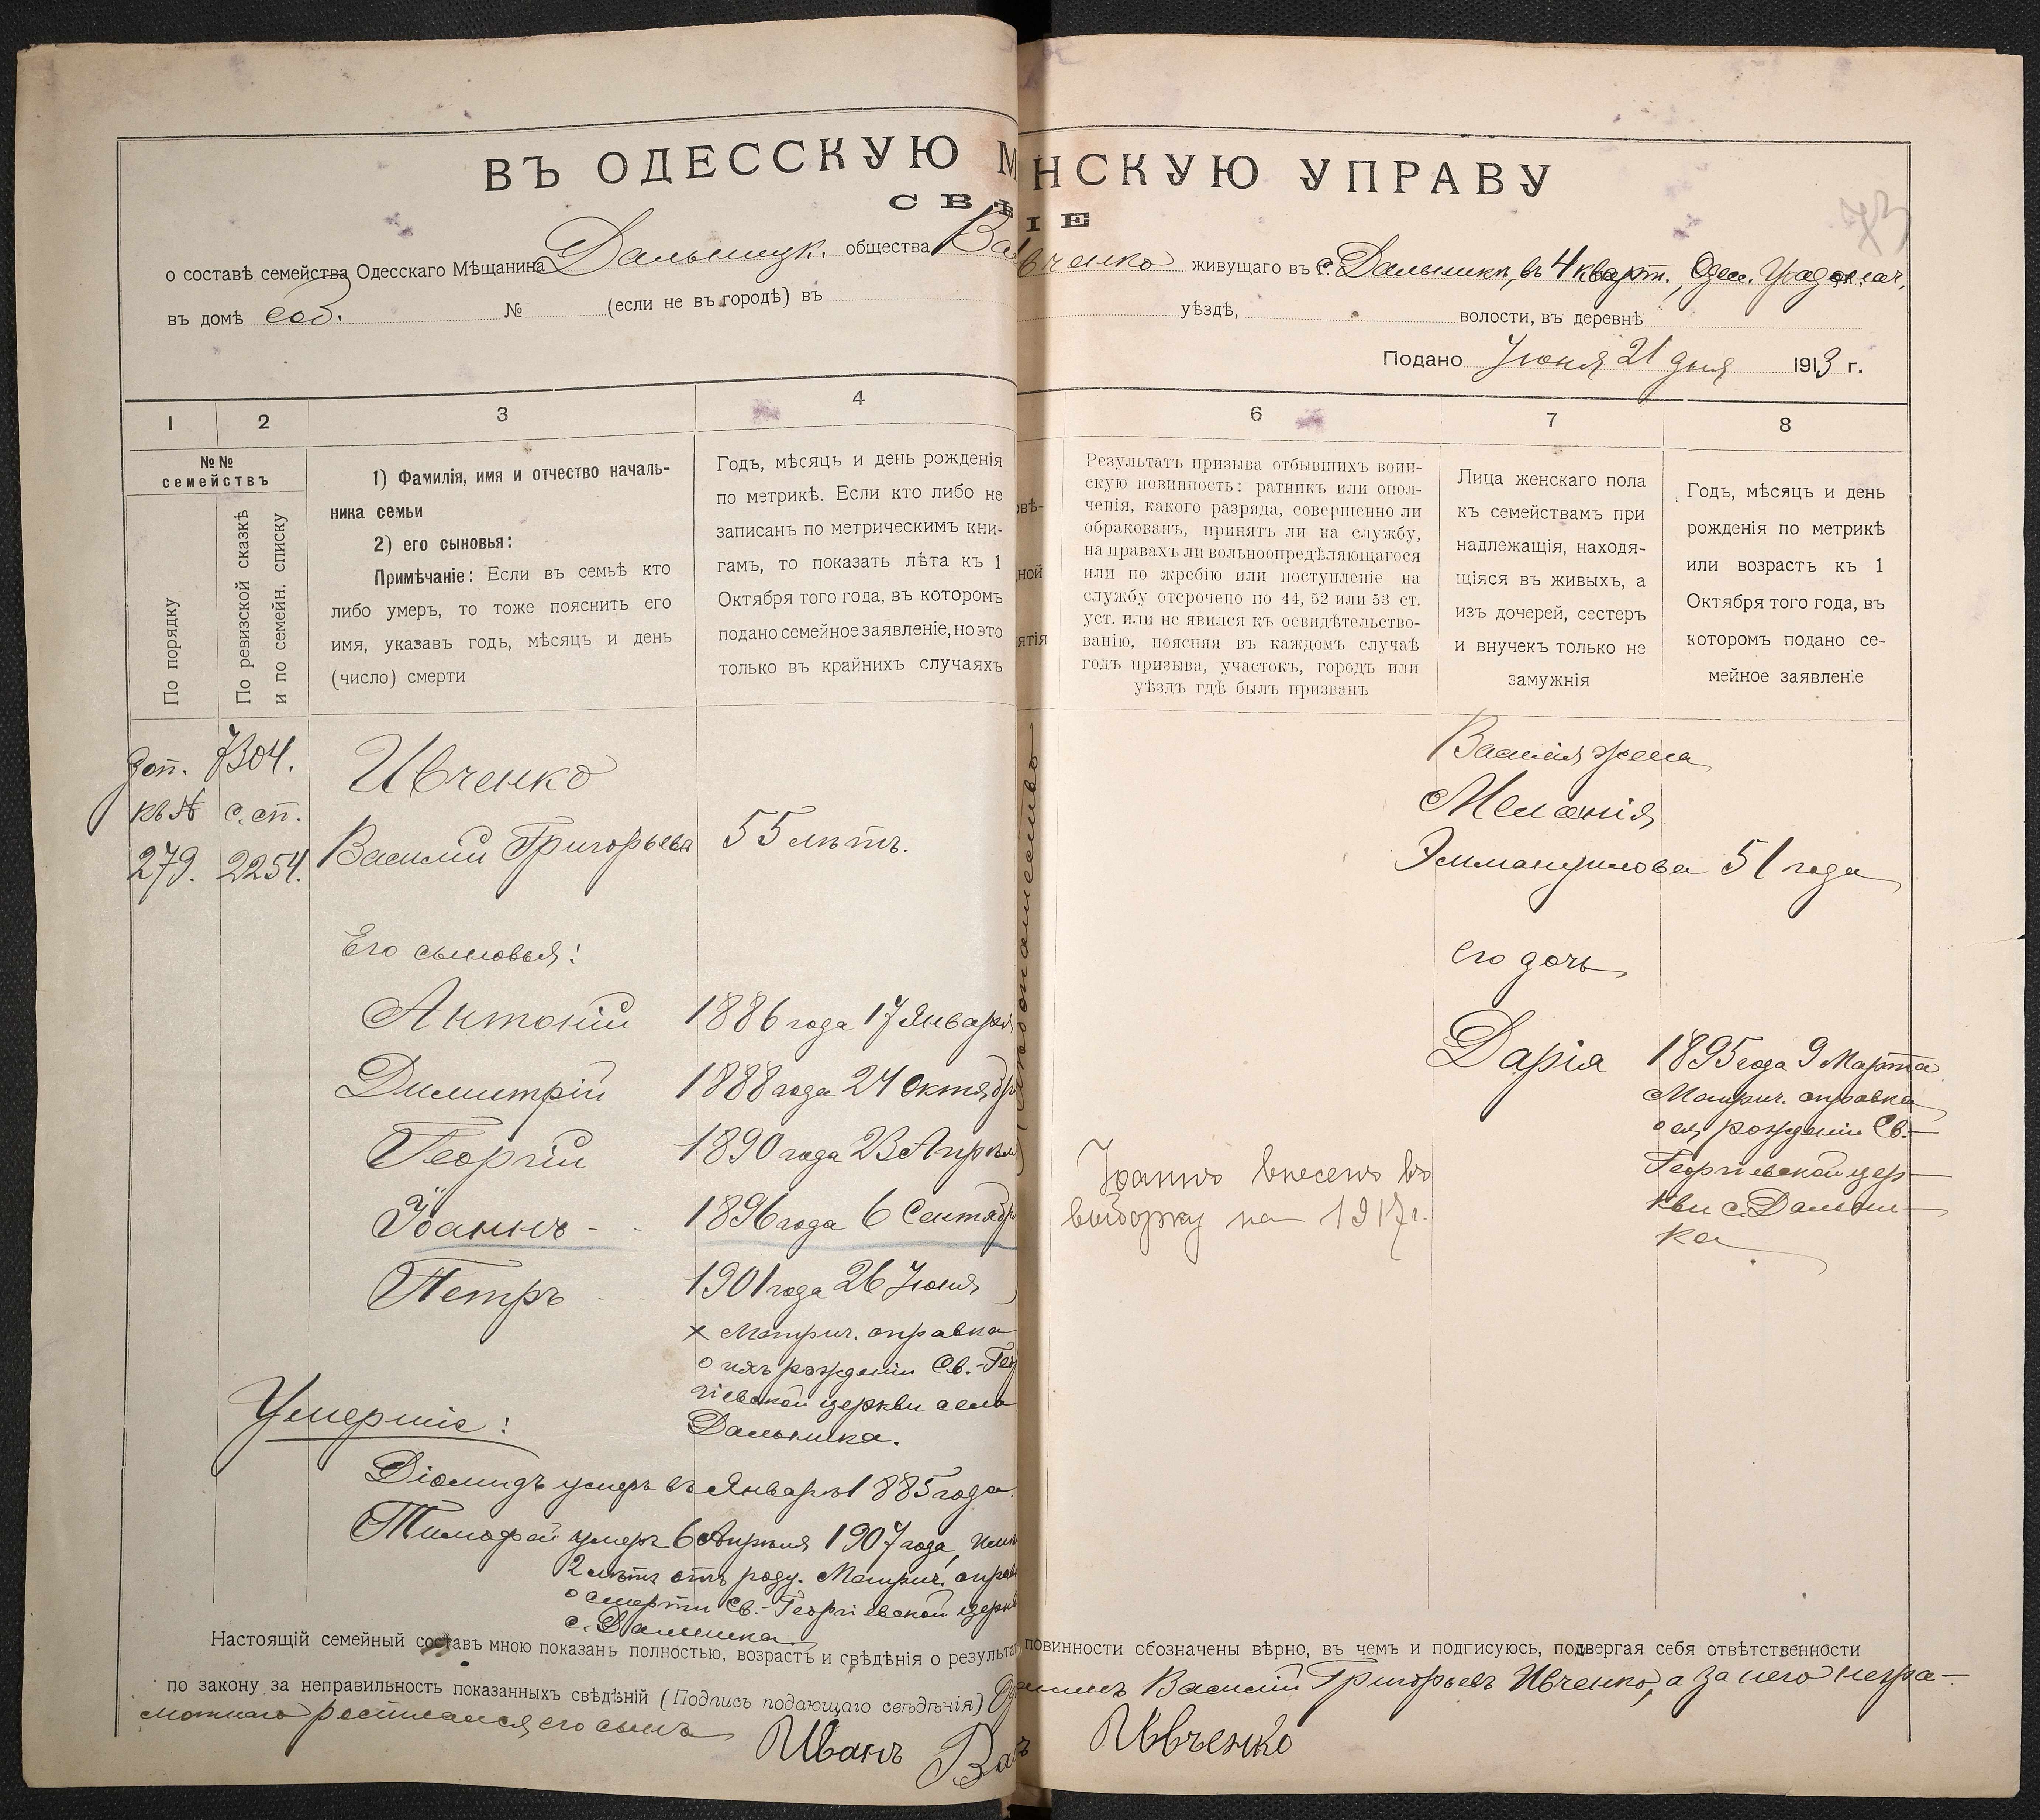 ВЪ ОДЕССКУЮ М
СВѢ
о составѣ семейства Одесскаго Мѣщанина Дальницк. общества Ва
въ домѣ соб. № (если не въ городѣ) въ
1 2 3 4
№№ семействъ
По порядку
По ревизской сказкѣ
и по семейн. списку
1) Фамилія, имя и отчество началь-
ника семьи
2) его сыновья:
Примѣчаніе: Если въ семьѣ кто
либо умеръ, то тоже пояснить его
имя, указавъ годъ, мѣсяцъ и день
(число) смерти
Годъ, мѣсяцъ и день рожденія
по метрикѣ. Если кто либо не
записанъ по метрическимъ кни-
гамъ, то показать лѣта къ 1
Октября того года, въ которомъ
подано семейное заявленіе, но это
только въ крайнихъ случаяхъ
доп. 7304.
кв № с. сп.
279. 2254.
Ивченко
Василій Григорьевъ 55 лѣтъ.
Его сыновья:
Антоній 1886 года 17 Января
Димитрій 1888 года 24 Октябр
Георгій 1890 года 23 Апрѣл
Іоаннъ - - 1896 года 6 Сентябр
Петръ 1901 года 26 Іюня
х Метрич. справка
о ихъ рожденіи Св.-Геор
гіевской церкви села
Дальника.
Умершіе:
Діомидъ умеръ въ Январѣ 1885 года.
Тимофей умеръ 6 Апрѣля 1907 года,
2 лѣтъ отъ роду. Метрич. справ
о смерти Св.-Георгіевской церкв
с. Дальника.
Настоящій семейный составъ мною показанъ полностью, возрастъ и свѣдѣнія о результа
по закону за неправильность показанныхъ свѣдѣній (Подпись подающаго свѣдѣнія)
сынъ
Иванъ Ва
НСКУЮ УПРАВУ
ІЕ
73
вченко живущаго въ с. Дальникѣ, въ 4 кварт., Одес. Градонач.
уѣздѣ, волости, въ деревнѣ
Подано Іюня 21 дня 1913 г.
6 7 8
овѣ-
ной
ятія
Результатъ призыва отбывшихъ воин-
скую повинность: ратникъ или опол-
ченія, какого разряда, совершенно ли
обракованъ, принятъ ли на службу,
на правахъ ли вольноопредѣляющагося
или по жребію или поступленіе на
службу отсрочено по 44, 52 или 53 ст.
уст. или не явился къ освидѣтельство-
ванію, поясняя въ каждомъ случаѣ
годъ призыва, участокъ, городъ или
уѣздъ гдѣ былъ призванъ
Лица женскаго пола
къ семействамъ при
надлежащія, находя-
щіяся въ живыхъ, а
изъ дочерей, сестеръ
и внучекъ только не
замужнія
Годъ, мѣсяцъ и день
рожденія по метрикѣ
или возрастъ къ 1
Октября того года, въ
которомъ подано се-
мейное заявленіе
Василія жена
Меланія
Эммануилова 51 года
его дочь
Дарія 1895 года 9 Марта
Метрич. справка
о ея рожденіи Св.-
Георгіевской цер-
кви с. Дальни-
ка
Іоаннъ внесенъ въ
выборку на 1917 г.
повинности обозначены вѣрно, въ чемъ и подгисуюсь, подвергая себя отвѣтственности
Василій Григорьевъ Ивченко, а за него негра-
мотнаго росписался его сынъ
ъ Ивченко